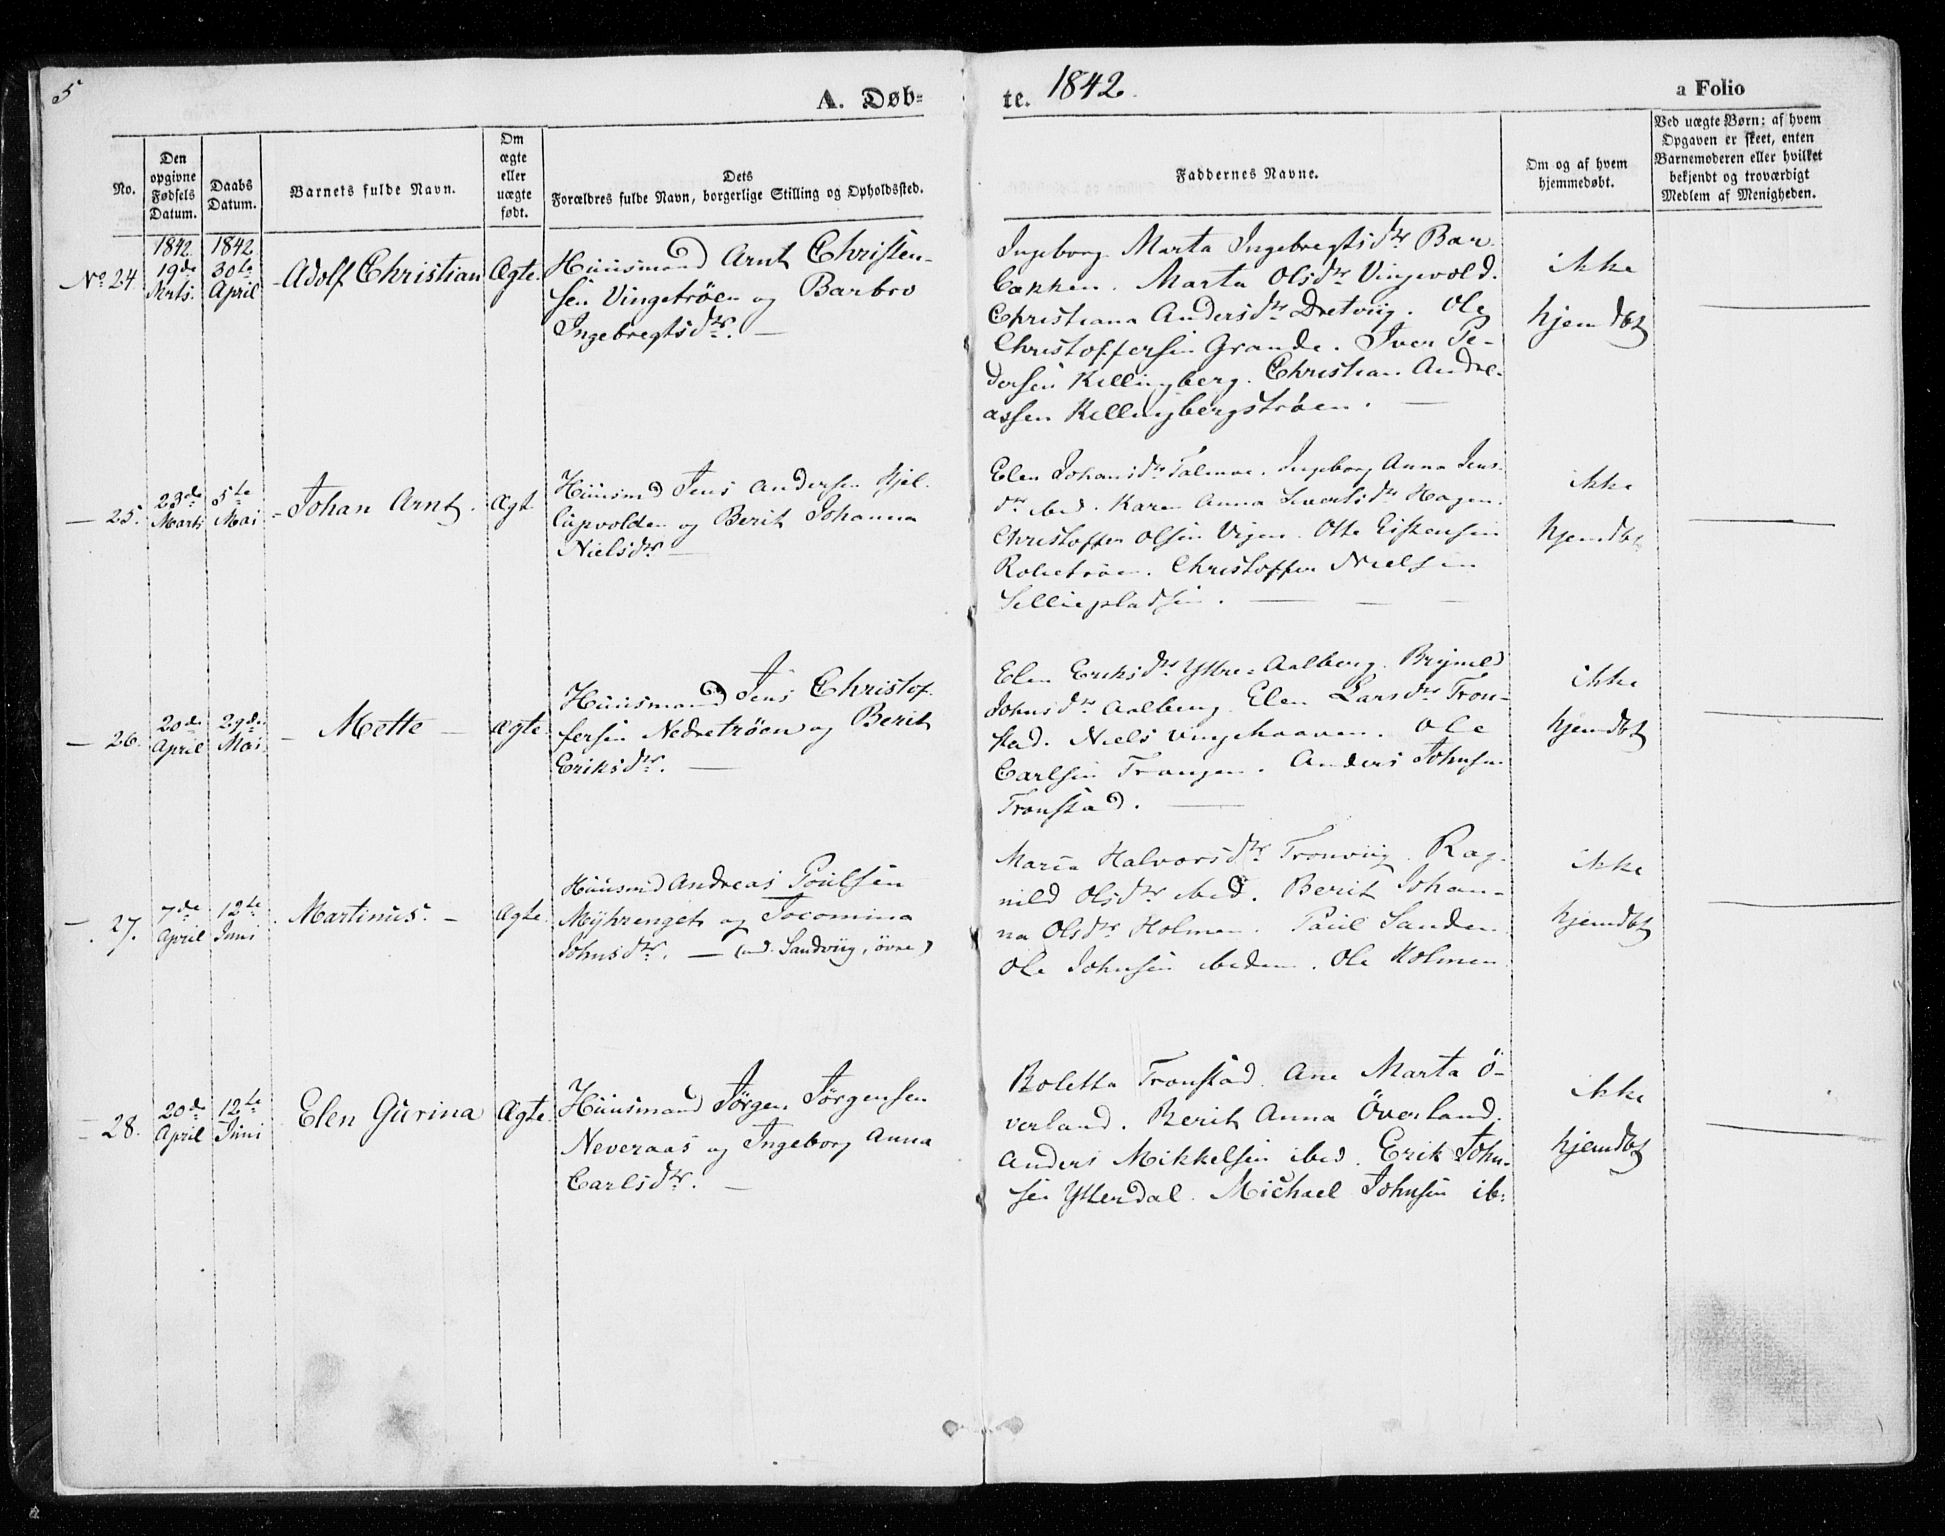 5
A. Døb-
te. 1842.
a Folio
No.
Den opgivne Fødsels Datum.
Daabs Datum.
Barnets fulde Navn.
Om ægte eller uægte født.
Dets
Forældres fulde Navn, borgerlige Stilling og Opholdssted.
Faddernes Navne.
Om og af hvem hjemmedøbt.
Ved uægte Børn; af hvem Opgaven er skeet, enten Barnemoderen eller hvilket bekjendt og troværdigt Medlem af Menigheden.
No 24
1842 19de Marts.
1842 30te April
Adolf Christian
Ægte.
Huusmand Arnt Christen-
sen Vingetrøen og Barbro
Ingebregtsdtr. —
Ingeborg Marta Ingebregtsdtr Bar
Bakken. Marta Olsdtr Vingvold.
Christiana Andersdtr Dretviig. Ole
Christoffersen Grande. Iver Pe-
dersen Killingberg. Christian Andre-
assen Killingbergstrøen. —
ikke
hjemdbt
— 25.
23de Marts
5te Mai
Johan Arnt.
Ægt
Huusmd Jens Andersen
og Berit Johanna
Nielsdtr —
Elen Johansdtr Ingeborg Anna Jens-
dtr ibid. Karen Anna Sivertsdtr Hagen.
Christoffer Olsen Otte
Christoffer Nielsen
ikke
hjemdbt
— 26.
20de April
29de Mai
— Mette —
Ægte
Huusmand Jens Christof-
fersen Nedretrøen og Berit
Eriksdtr. —
Elen Eriksdtr Yttre-Aalberg. Brynild
Johnsdtr Aalberg. Elen Larsdtr Tron-
stad. Niels Ole
Carlsen Trangen. Anders Johnsen
Tronstad. —
ikke
hjemdbt
— 27.
7de April
12te Juni
Martinus. —
Ægte.
Huusmd Andreas Poulsen
Myhrenget og Jocomina
Johnsdtr. — (und. Sandviig, övre)
Maria Halvorsdtr Tronviig. Rag-
nild Olsdtr ibid. Berit Johan-
na Olsdtr Holmen. Paul Sanden.
Ole Johnsen ibidem. Ole Holmen.
ikke
hjemdbt
— 28.
20de April
12te Juni
Elen Gurina
Ægte.
Huusmand Jørgen Jørgensen
Neveraas og Ingeborg Anna
Carlsdtr. —
Boletta Tronstad. Ane Marta Ö-
verland. Berit Anna Överland.
Anders Mikkelsen ibid. Erik John-
sen Ytterdal. Michael Johnsen ib:
ikke
hjemdbt